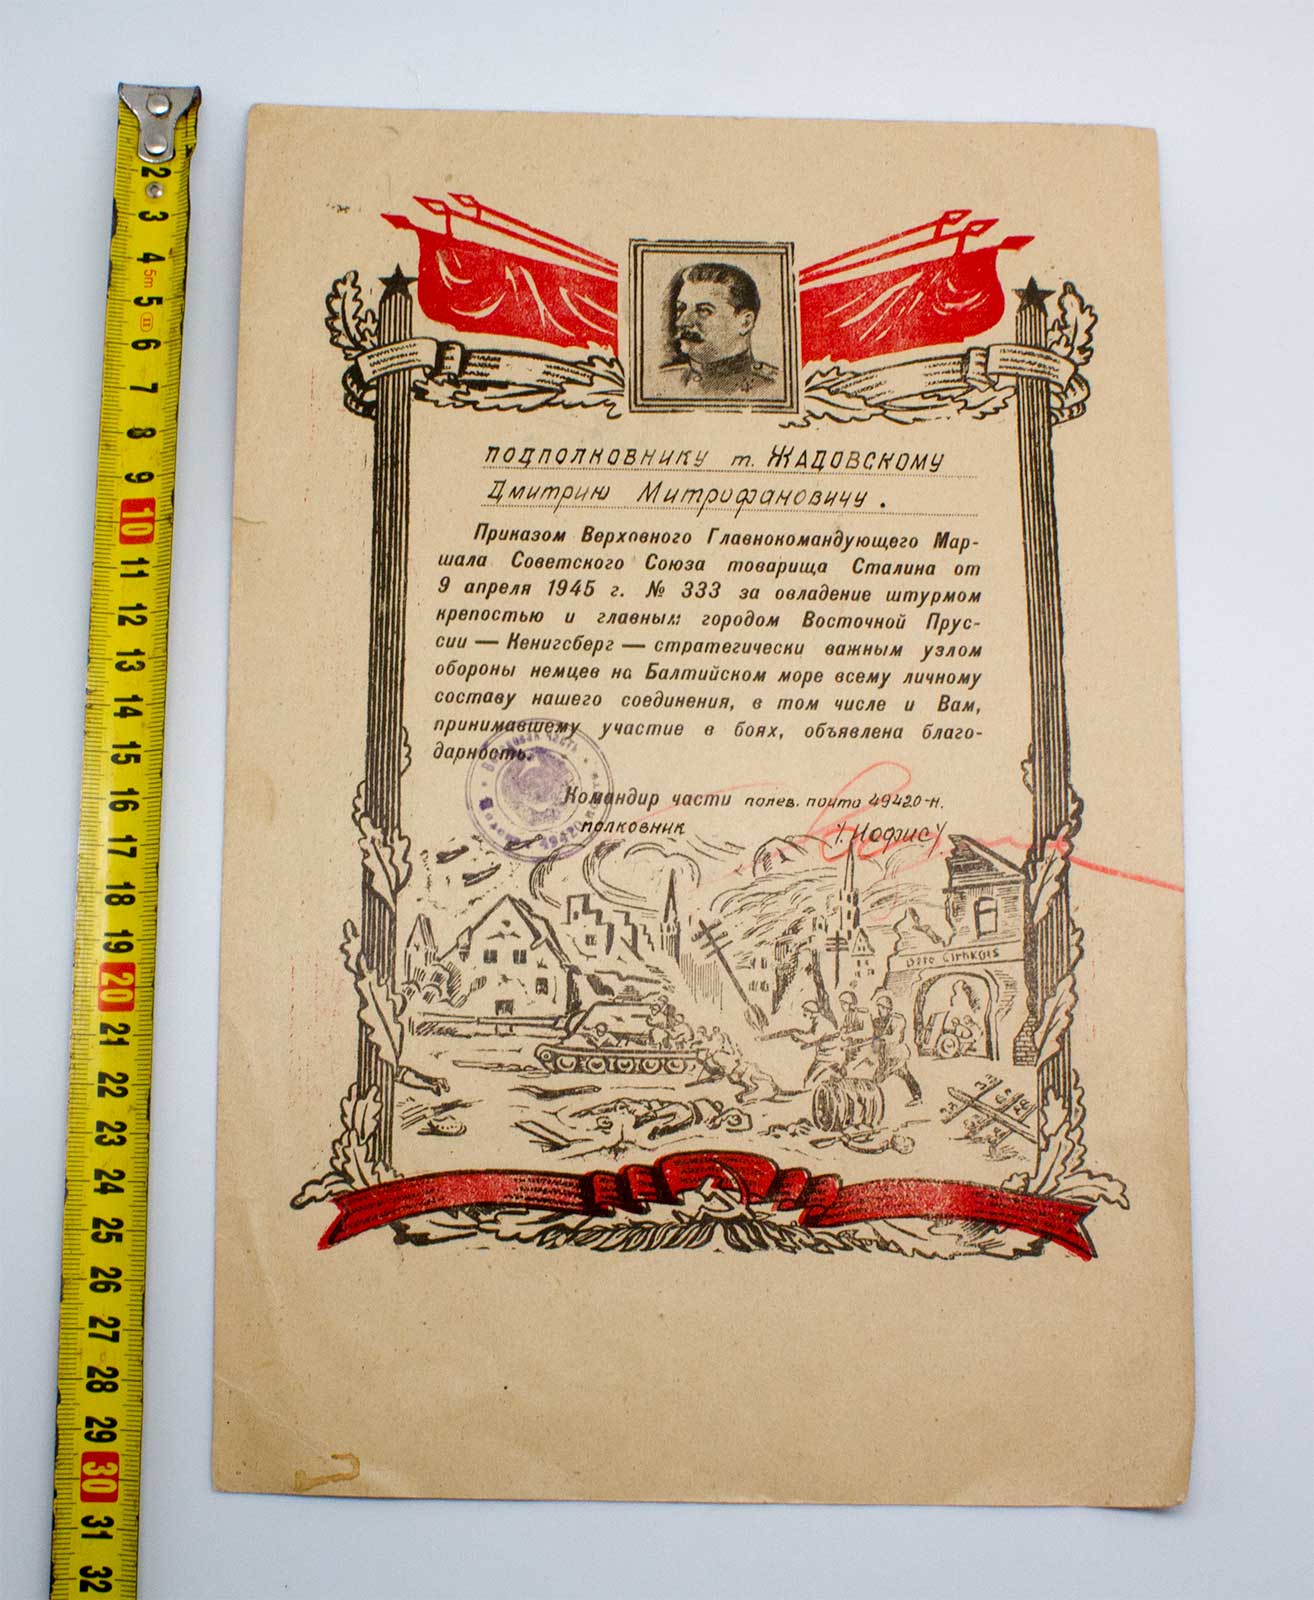 2
3
4
5m
5
II
6
7
8
9
10
11
12
13
14
15
16
17
18
19
20
21
22
23
24
25
26
27
28
29
30
31
32
подполковнику т. Жадовскому
Дмитрию Митрофановичу.
Приказом Верховного Главнокомандующего Мар-
шала Советского Союза товарища Сталина от
9 апреля 1945 г. № 333 за овладение штурмом
крепостью и главным городом Восточной Прус-
сии — Кенигсберг — стратегически важным узлом
обороны немцев на Балтийском море всему личному
составу нашего соединения, в том числе и Вам,
принимавшему участие в боях, объявлена благо-
дарность.
Командир части полев. почта 49420-н.
полковник /Иофис/